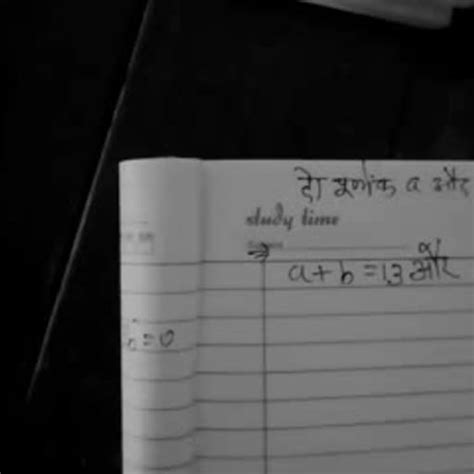 दो पूर्णांक a और
study time
a+b=13 और
=0